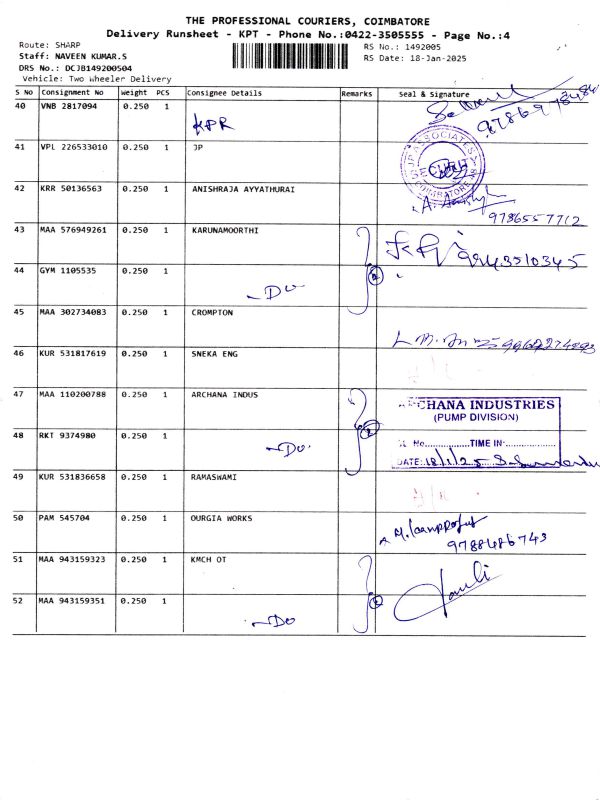 THE PROFESSIONAL COURIERS, COIMBATORE
Delivery Runsheet - KPT - Phone No.:0422-3505555 - Page No.:4
Route: SHARP
RS No.: 1492005
Staff: NAVEEN KUMAR.S
RS Date: 18-Jan-2025
DRS No.: DCJB149200504
Vehicle: Two Wheeler Delivery
S No Consignment No Weight PCS Consignee Details Remarks Seal & Signature
40 VNB 2817094 0.250 1 KPR
41 VPL 226533010 0.250 1 JP
JP ASSOCIATES
SECURITY
COIMBATORE
42 KRR 50136563 0.250 1 ANISHRAJA AYYATHURAI
9786557712
43 MAA 576949261 0.250 1 KARUNAMOORTHI
9943510345
44 GYM 1105535 0.250 1 - Do
45 MAA 302734083 0.250 1 CROMPTON
46 KUR 531817619 0.250 1 SNEKA ENG
47 MAA 110200788 0.250 1 ARCHANA INDUS
ARCHANA INDUSTRIES
(PUMP DIVISION)
48 RKT 9374980 0.250 1 - Do.
No. TIME IN:
DATE: 18/1/25
49 KUR 531836658 0.250 1 RAMASWAMI
50 PAM 545704 0.250 1 OURGIA WORKS
9788486743
51 MAA 943159323 0.250 1 KMCH OT
52 MAA 943159351 0.250 1 - Do